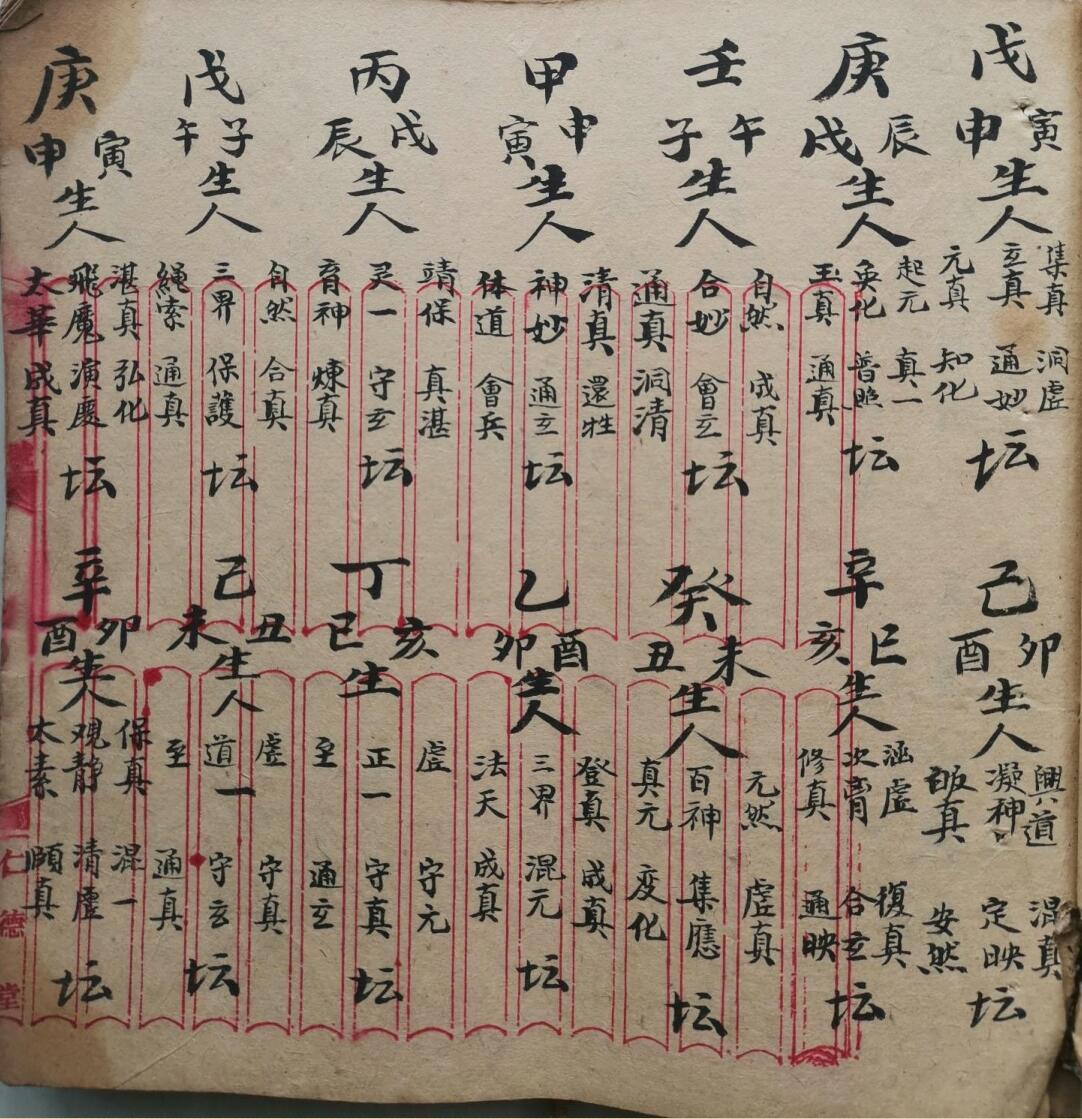 戊
寅 申
生人
集真 洞虚
玄真 通妙
元真 知化
坛
己
卯 酉
生人
興道 混真
凝神 定映
真 安然
坛
庚
辰 戌
生人
起元 真一
奂化 普照
玉真 通真
坛
辛
巳 亥
生人
涵虚 復真
次膏 合玄
修真 通映
坛
壬
午 子
生人
自然 成真
合妙 會玄
通真 洞清
坛
癸
未 丑
生人
元然 虚真
百神 集應
真元 变化
坛
甲
申 寅
生人
清真 還牲
神妙 通玄
体道 會兵
坛
乙
酉 卯
生人
登真 成真
三界 混元
法天 成真
坛
丙
戌 辰
生人
靖保 真湛
灵一 守玄
育神 煉真
坛
丁
亥 巳
生
虚 守元
正一 守真
至 通玄
坛
戊
子 午
生人
自然 合真
三界 保護
繩索 通真
坛
己
丑 未
生人
虚 守真
道一 守玄
至 通真
坛
庚
寅 申
生人
湛真 弘化
飛魔 演慶
太華 成真
坛
辛
卯 酉
生人
保真 混一
观静 清虚
太素 頤真
坛
仁德堂